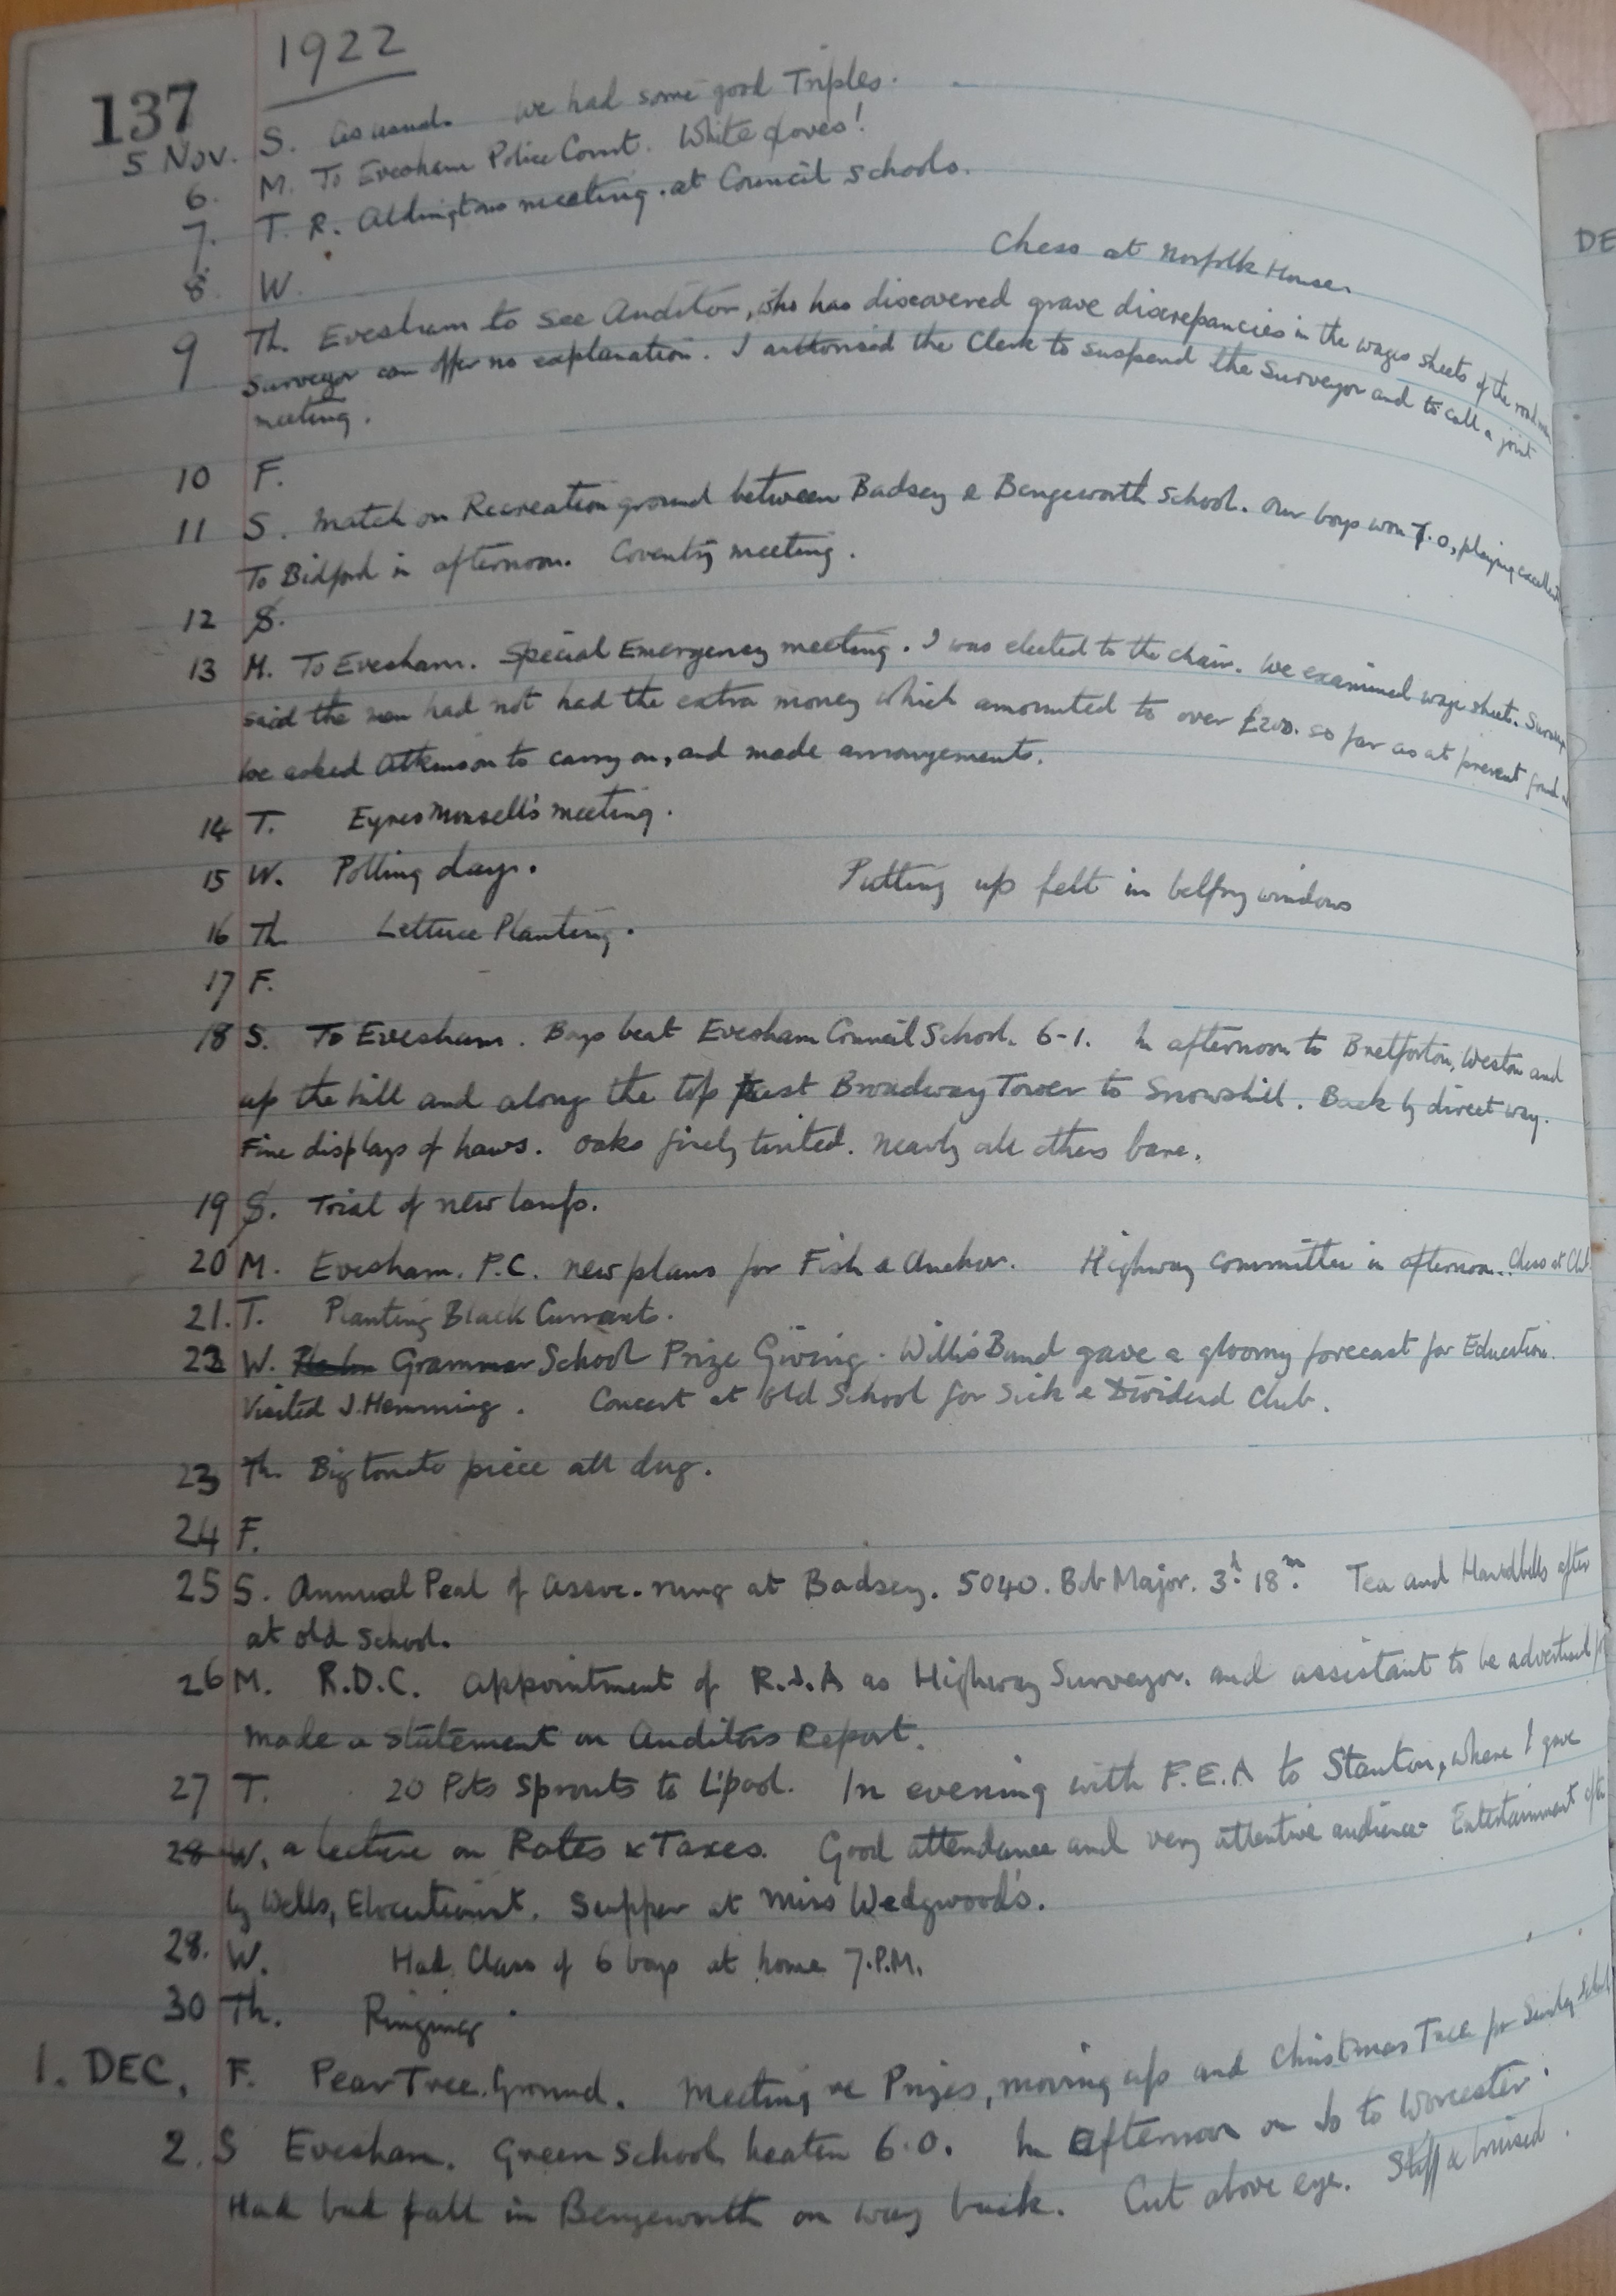 1922
137
5 Nov. S. As usual. We had some good Triples.
6. M. To Evesham Police Court. White Gloves!
7. T. R. Aldingtons meeting. at Council Schools.
8. W. Chess at Norfolk House.
9 Th. Evesham to see Auditor, who has discovered grave discrepancies in the wages sheets of the roadmen
Surveyor can offer no explanation. I authorised the Clerk to suspend the Surveyor and to call a joint
meeting.
10 F.
11 S. Match on Recreation ground between Badsey & Bengeworth School. Our boys won 7.0, playing
To Bidford in afternoon. Coventry meeting.
12 S.
13 M. To Evesham. Special Emergency meeting. I was elected to the chair. We examined wage sheets.
said the men had not had the extra money which amounted to over £200. so far as at present found
We asked Atkinson to carry on, and made arrangements.
14 T. Eyres Monsell's meeting.
15 W. Polling day. Putting up felt in belfry windows
16 Th Lettuce Planting.
17 F.
18 S. To Evesham. Boys beat Evesham Council School. 6-1. In afternoon to Bretforton, Weston and
up the hill and along the top past Broadway Tower to Snowshill. Back by direct way.
Fine displays of haws. Oaks finely tinted. Nearly all others bare.
19 S. Trial of new lamps.
20 M. Evesham. P.C. New plans for Fish & Anchor. Highway committee in afternoon. Chess at Club.
21. T. Planting Black Currants.
22 W. Grammar School Prize Giving. Willis Bund gave a gloomy forecast for Education.
Visited J. Hemming. Concert at Old School for Sick & Dividend Club.
23 Th. Big tomato piece all dug.
24 F.
25 S. Annual Peal of Assoc. rung at Badsey. 5040. Bob Major. 3h. 18m. Tea and Handbells after
at old School.
26 M. R.D.C. Appointment of R.J.A as Highway Surveyor. and assistant to be advertised for
Made a statement on Auditors Report.
27 T. 20 Pots Sprouts to L'pool. In evening with F.E.A to Stanton, where I gave
28 W. a lecture on Rates & Taxes. Good attendance and very attentive audience. Entertainment after
by Wells, Elocutionist. Supper at Miss Wedgwood's.
28. W. Had Class of 6 boys at home 7.P.M.
30 Th. Ringing.
1. DEC. F. Pear Tree. Ground. Meeting re Prizes, moving up and Christmas Tree for Sunday School
2. S Evesham. Green School beaten 6.0. In afternoon on to Worcester.
Had bad fall in Bengeworth on way back. Cut above eye. Stiff & bruised.
DE